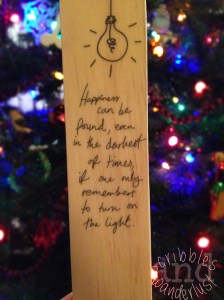 Happiness
can be
found, even
in the darkest
of times,
if one only
remembers
to turn on
the light.
scribbles
and
wanderlust